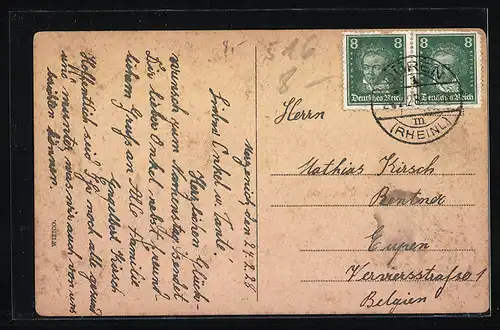 Merzenich den 24.2.28
Liebes Onkel u. Tante!
Herzlichen Glück-
wunsch zum Namenstag sendet
Dir lieber Onkel nebst
lichem Gruß an Alle Familie
Engelbert Kirsch
Hoffentlich seid Ihr noch alle gesund
und munter, was wir auch von uns
können.
516
8 –
8
Deutsches Reich
8
Deutsches Reich
DÜREN
(RHEINL)
m
Herrn
Mathias Kirsch
Rentner
Eupen
Verviersstraße 1
Belgien